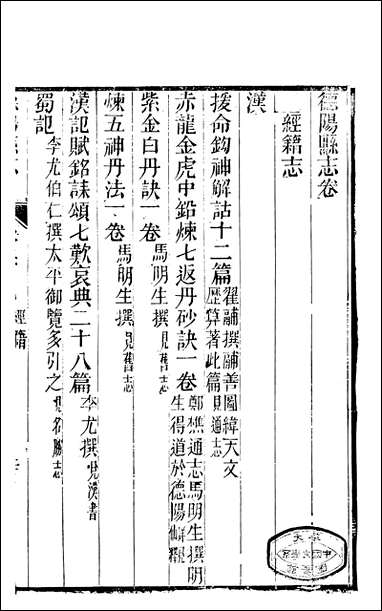 德陽縣志卷
經籍志
漢
援命鈎神解詁十二篇 翟酺撰酺善圖緯天文歷算著此篇見通志
赤龍金虎中鉛煉七返丹砂訣一卷 鄭樵通志馬明生撰明生得道於德陽
紫金白丹訣一卷 馬明生撰見舊志
煉五神丹法一卷 馬明生撰見舊志
漢記賦銘誄頌七歎哀典二十八篇 李尤撰見漢書
蜀記 李尤伯仁撰太平御覽多引之見名勝志
經籍